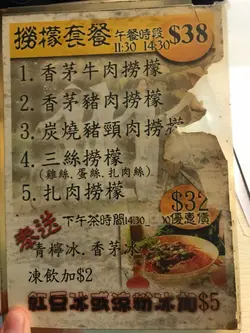 撈檬套餐 午餐時段 $38
11:30 14:30
1. 香茅牛肉撈檬
2. 香茅豬肉撈檬
3. 炭燒豬頸肉撈檬
4. 三絲撈檬
(雞絲.蛋絲.扎肉絲)
5. 扎肉撈檬
$32
下午茶時間14:30 30優惠價
青檸冰.香茅冰
凍飲加$2
紅豆冰 $5